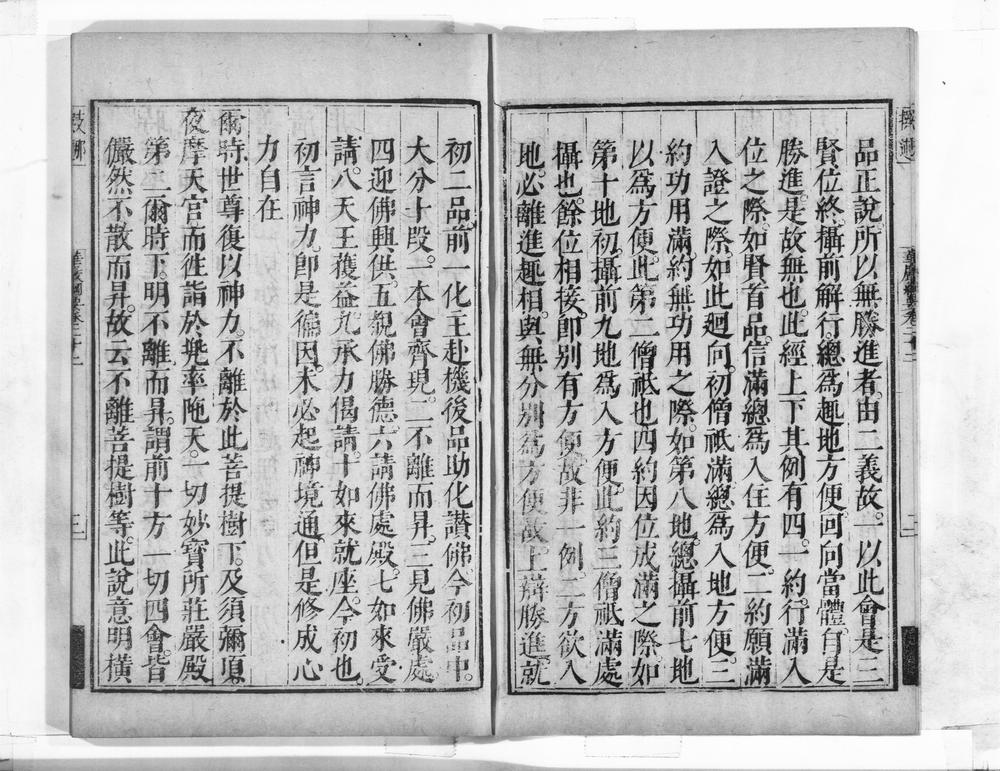 品正說所以無勝進者由二義故。一以此會是三
賢位終。攝前解行總爲趣地方便。回向當體。自是
勝進。是故無也。此經上下其例有四。一約行滿入
位之際。如賢首品。信滿總爲入住方便。二約願滿
入證之際。如此迴向。初僧祇滿總爲入地方便。三
約功用滿。約無功用之際。如第八地。總攝前七地
以爲方便。此第二僧祇也。四約因位成滿之際。如
第十地初。攝前九地爲入方便。此約三僧祇滿處
攝也。餘位相接。卽別有方便。故非一例。二方欲入
地。必離進趣相。與無分別爲方便。故上辯勝進。就
初二品。前一化主赴機。後品助化讃佛。今初品中。
大分十段。一本會齊現。二不離而昇。三見佛嚴處。
四迎佛興供。五覩佛勝德。六請佛處殿。七如來受
請。八天王獲益。九承力偈請。十如來就座。今初也。
初言神力。卽是徧因。未必起神境通。但是修成心
力自在
爾時世尊復以神力。不離於此菩提樹下。及須彌頂。
夜摩天宮而徃詣於兠率陁天。一切妙寶所莊嚴殿
第二爾時下。明不離而昇。謂前十方一切四會。皆
儼然不散而昇。故云不離菩提樹等。此說意明橫
華嚴綱要卷二十二
三